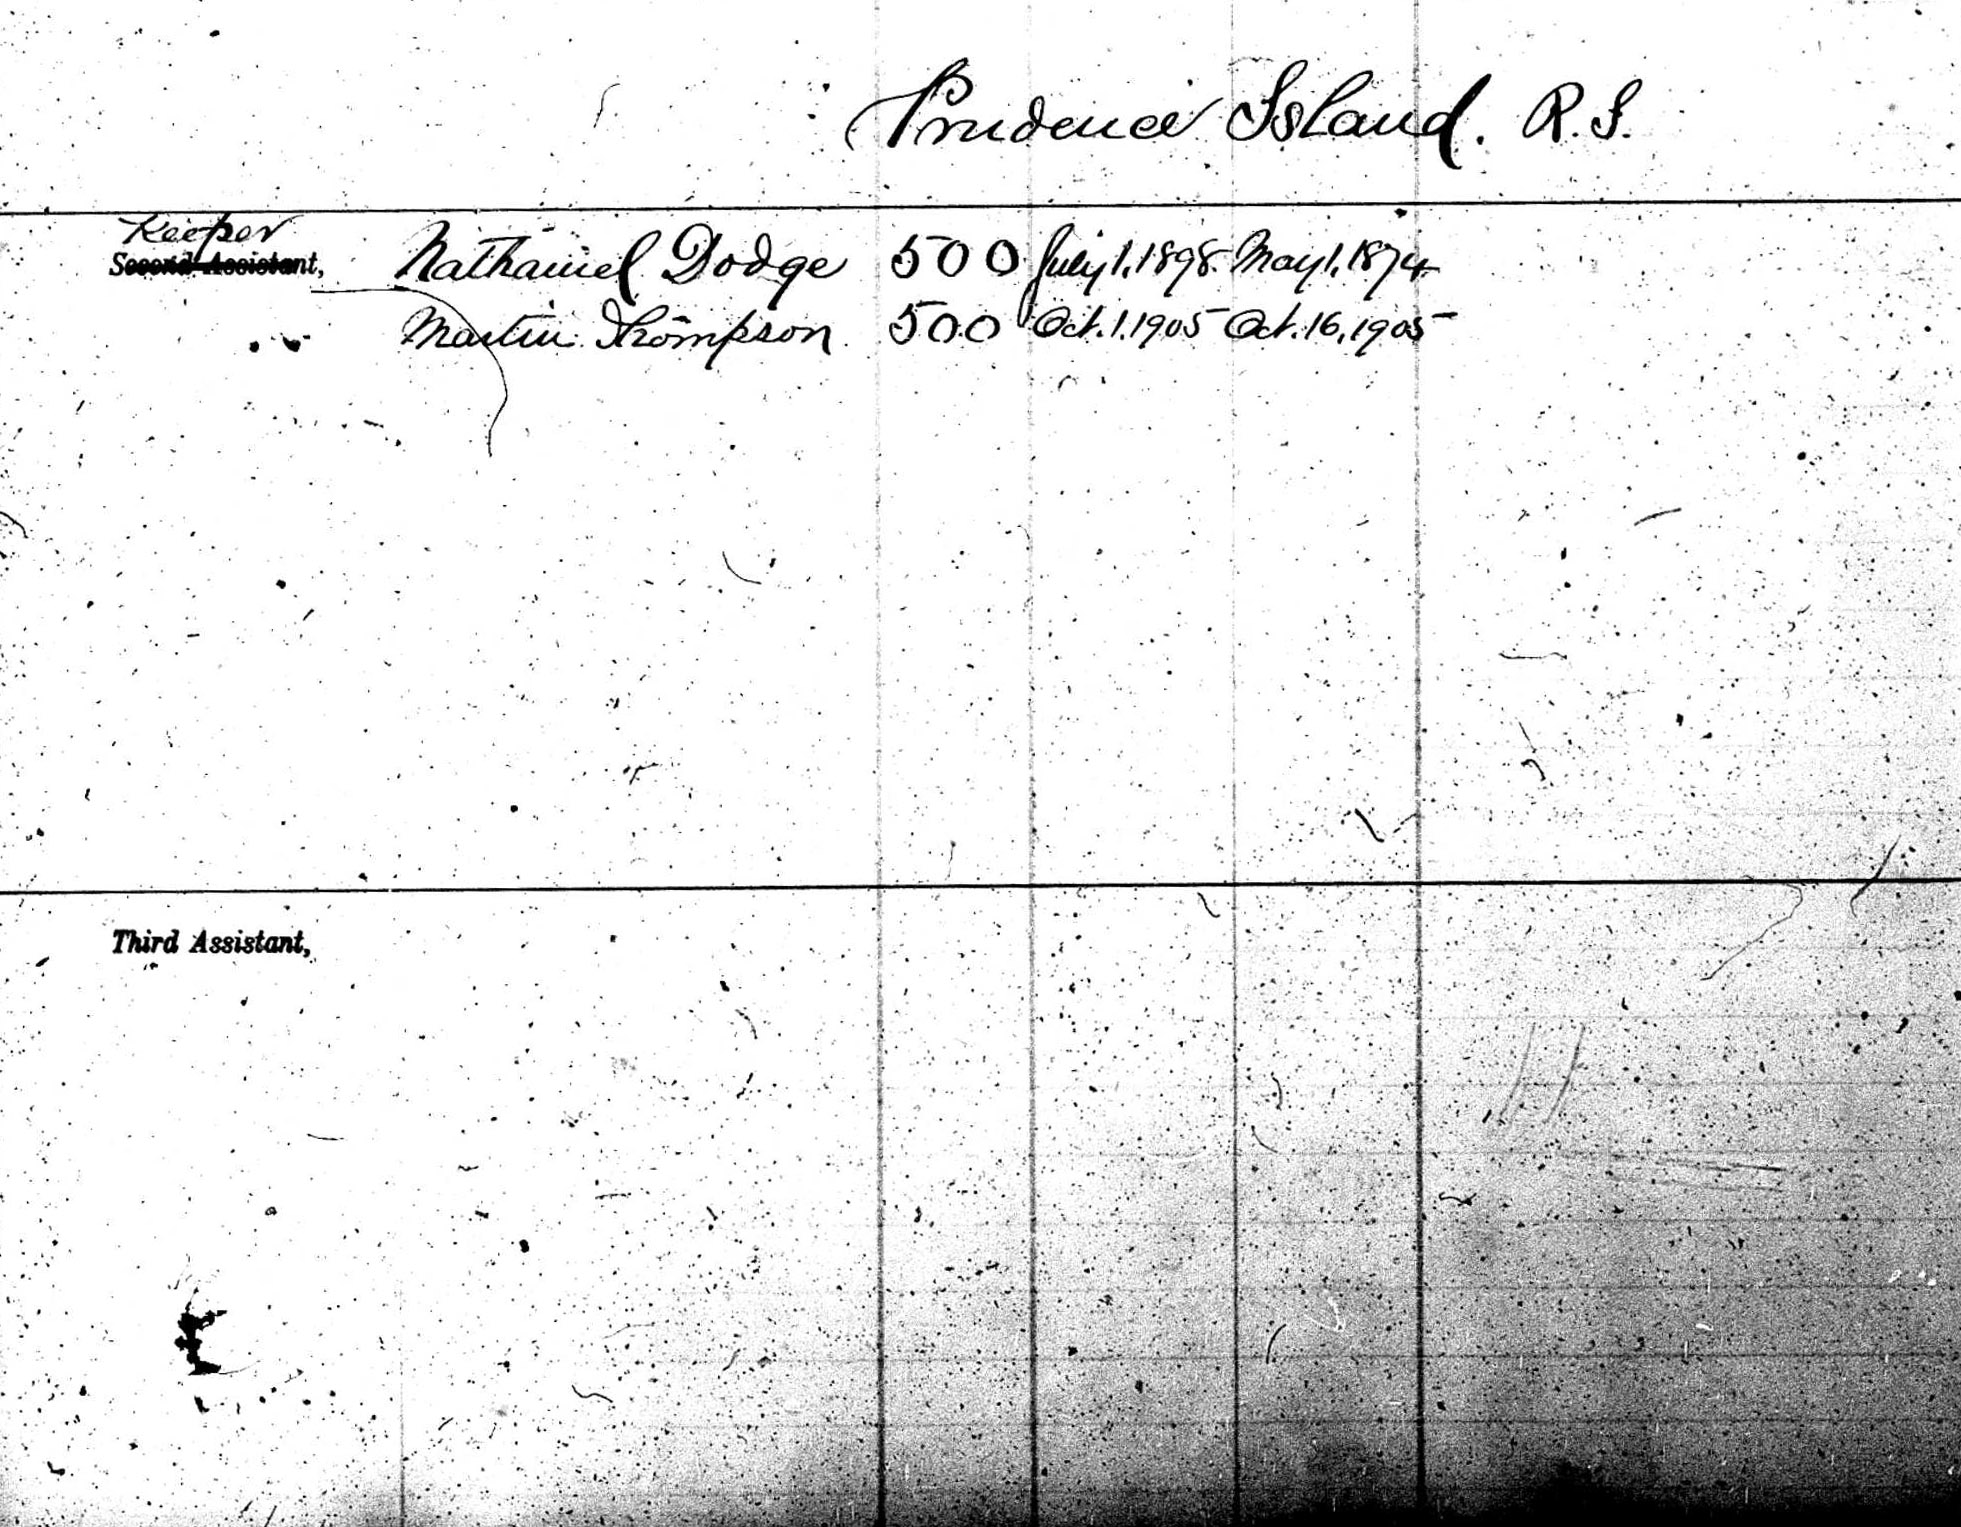 Prudence Island. R.I.
Keeper
Second Assistant,
Nathaniel Dodge 500 July 1, 1898. May 1, 1874
Martin Thompson 500 Oct. 1, 1905 Oct. 16, 1905
Third Assistant,